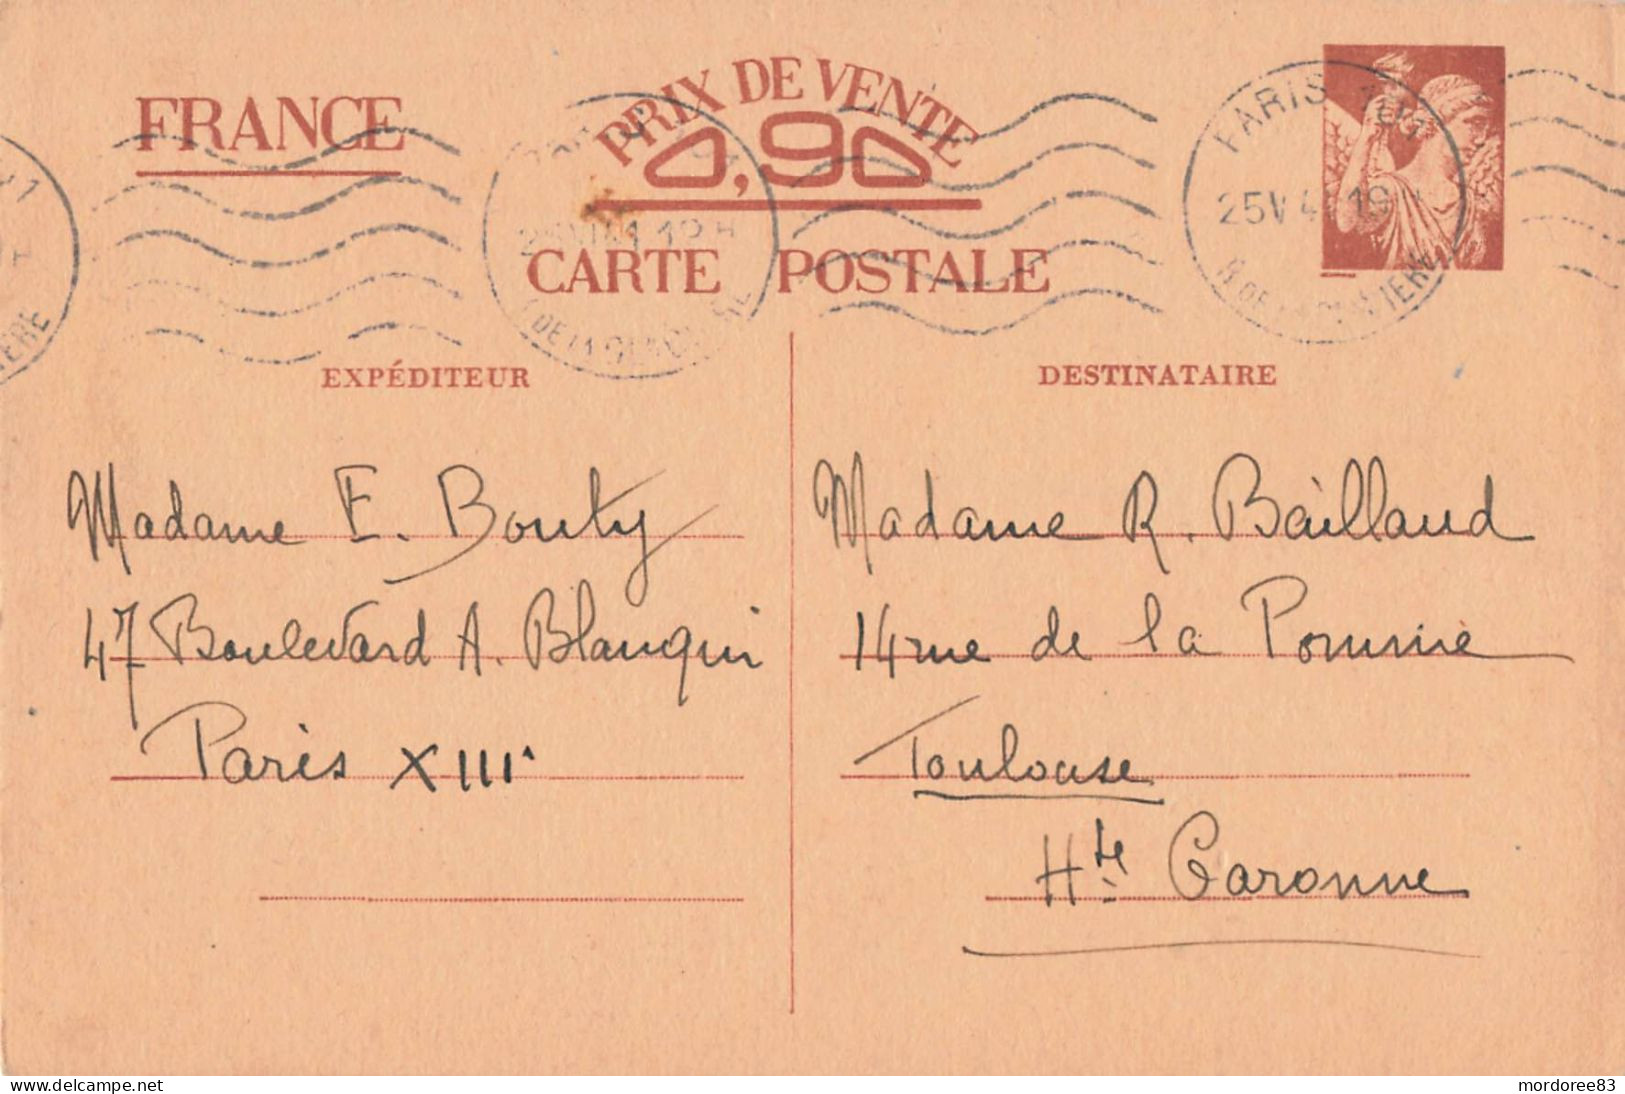 FRANCE
PRIX DE VENTE
0,90
CARTE POSTALE
PARIS
25 V 41 19
EXPÉDITEUR
DESTINATAIRE
Madame E. Bouty
47 Boulevard A. Blanqui
Paris XIIIe
Madame R. Baillaud
14 rue de la Pomme
Toulouse
Hte Garonne
www.delcampe.net
mordoree83